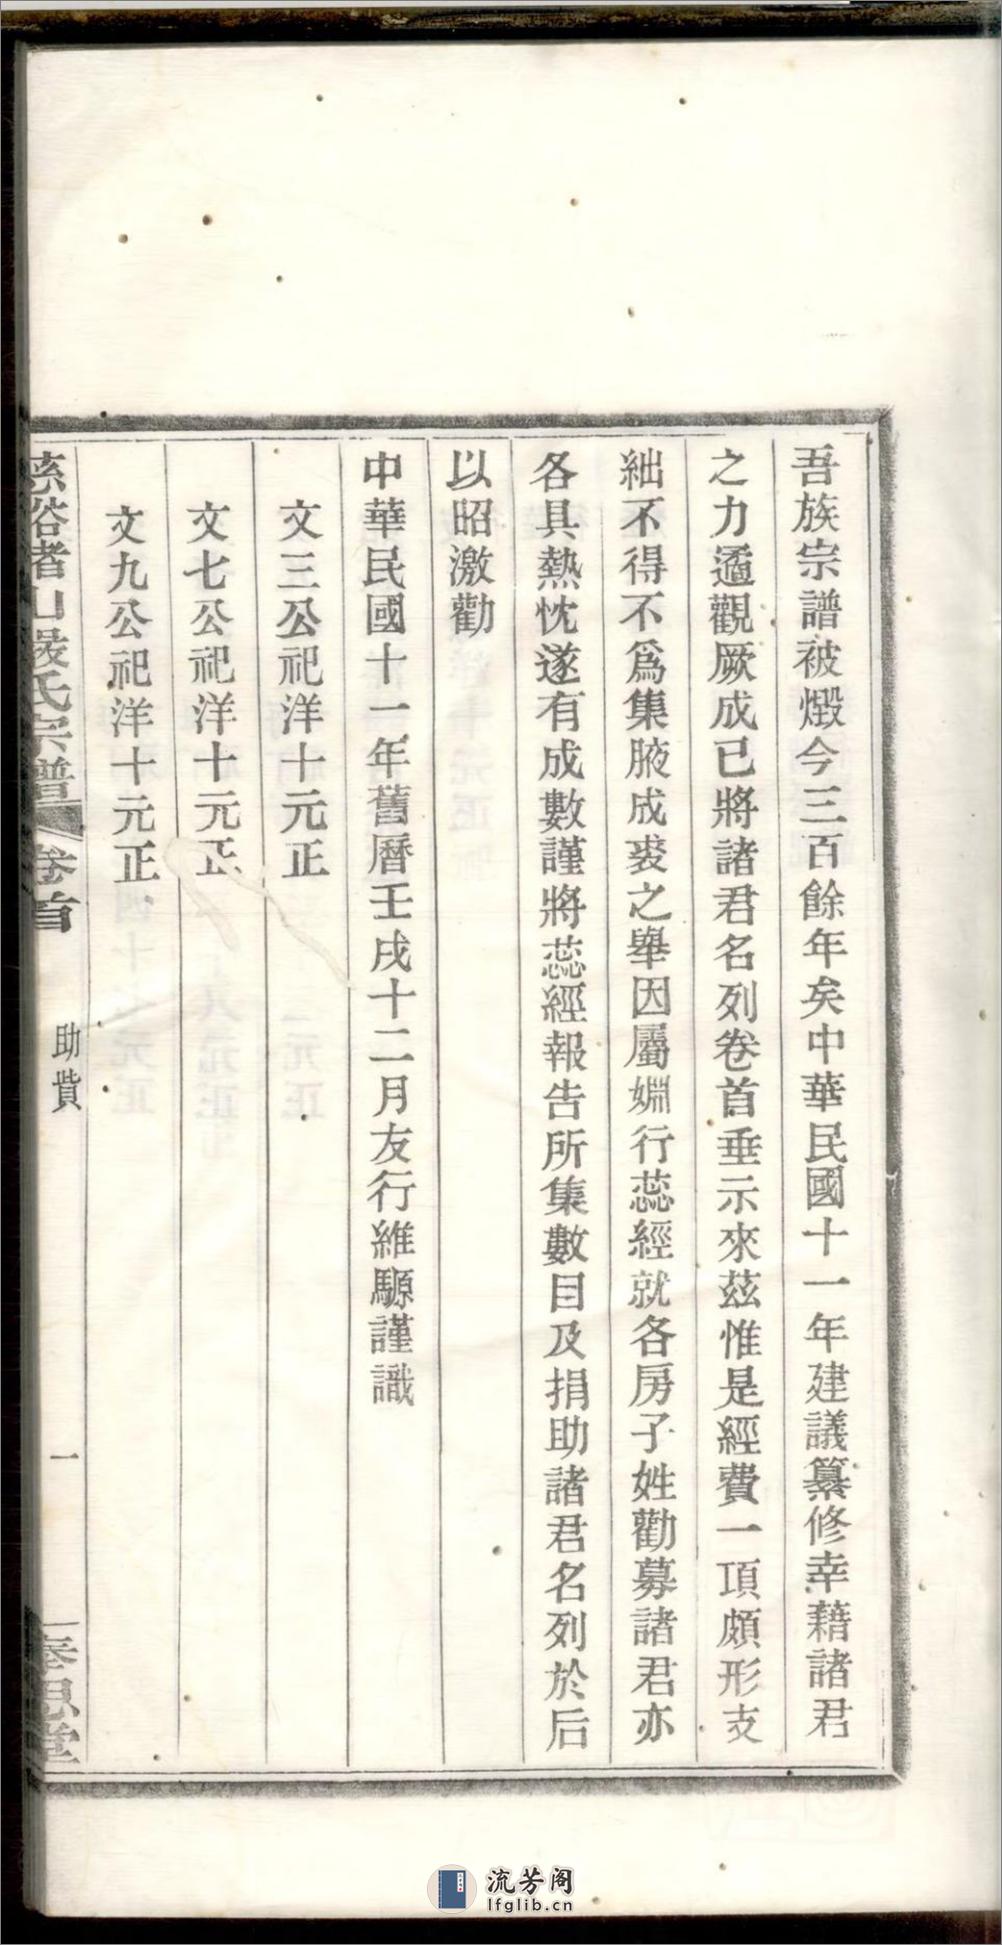 吾族宗譜被燬今三百餘年矣中華民國十一年建議纂修幸藉諸君
之力遹觀厥成已將諸君名列卷首垂示來茲惟是經費一項頗形支
絀不得不爲集腋成裘之舉因屬婣行蕊經就各房子姓勸募諸君亦
各具熱忱遂有成數謹將蕊經報告所集數目及捐助諸君名列於后
以昭激勸
中華民國十一年舊曆壬戌十二月友行維騵謹識
文三公祀洋十元正
文七公祀洋十元正
文九公祀洋十元正
谷者山嚴氏宗譜 卷首 助貲 一 奉思堂
流芳阁
lfglib.cn